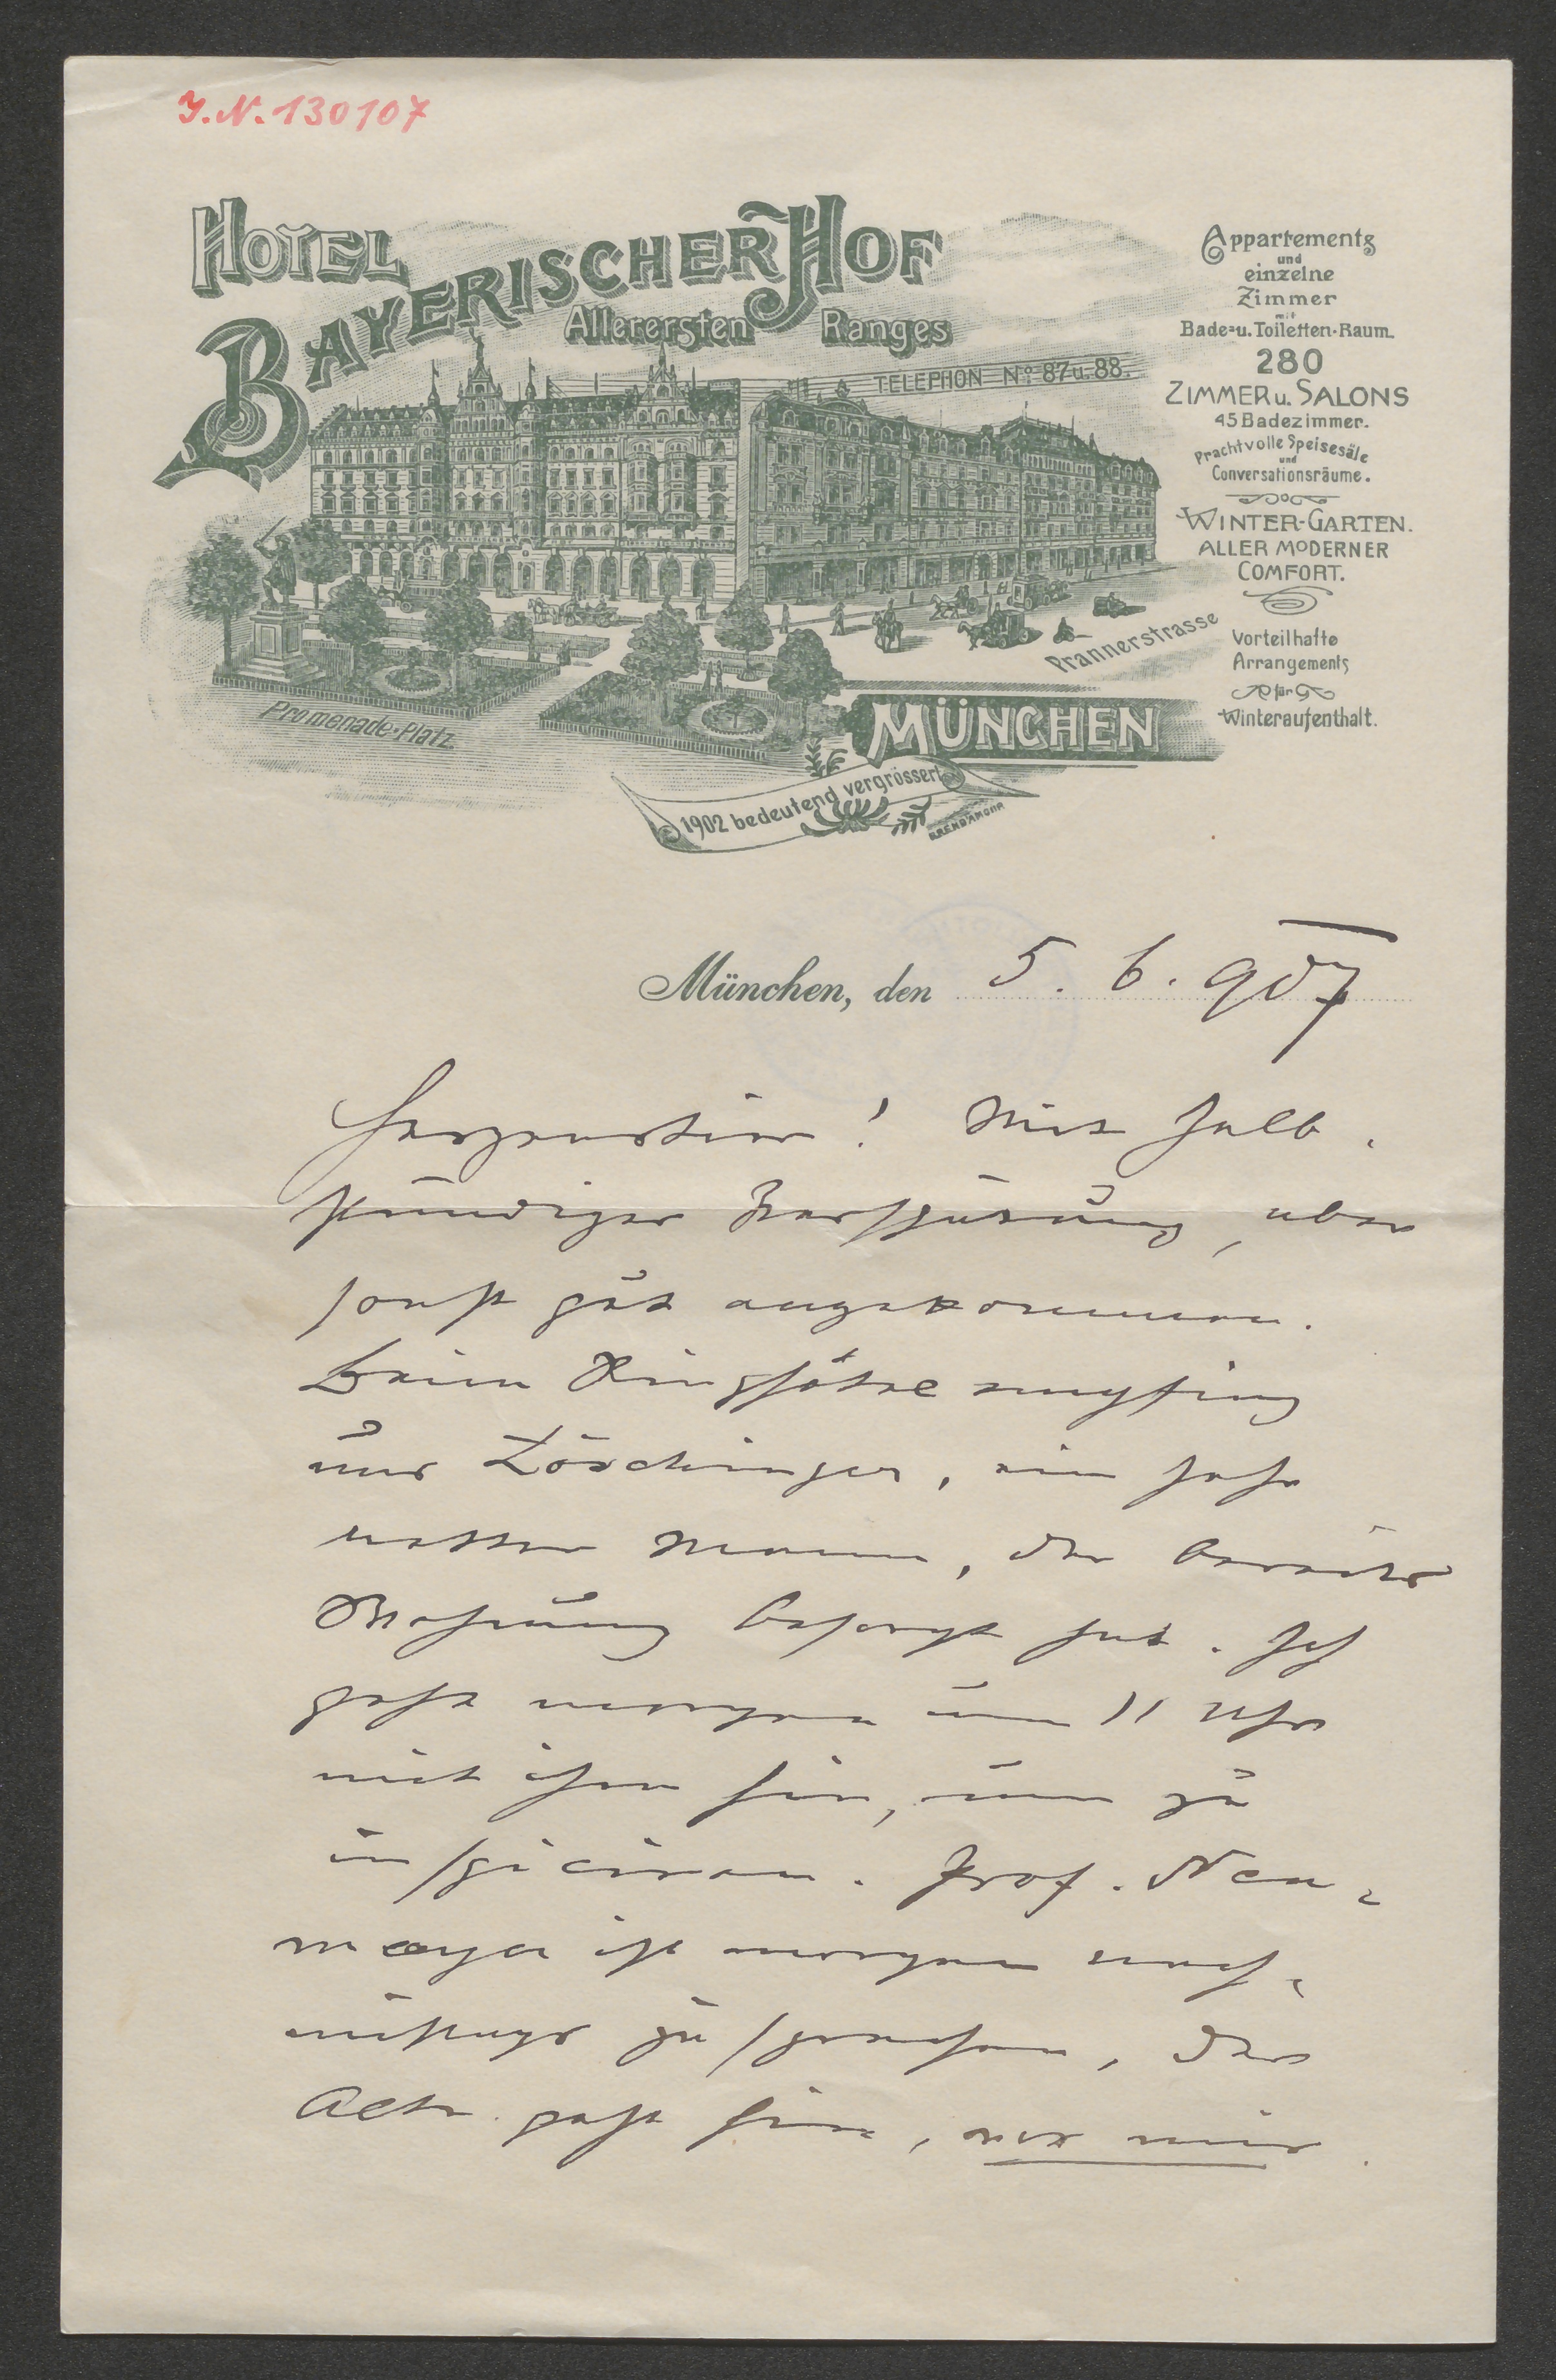 J.N. 130107
HOTEL
BAYERISCHER HOF
Allerersten Ranges
TELEPHON No. 87 u. 88.
Appartements
und
einzelne
Zimmer
mit
Bade- u. Toiletten-Raum.
280
ZIMMER u. SALONS
45 Badezimmer.
Prachtvolle Speisesäle
und
Conversationsräume.
WINTER-GARTEN.
ALLER MODERNER
COMFORT.
Vorteilhafte
Arrangements
für
Winteraufenthalt.
Prannerstrasse
Promenade-Platz
MÜNCHEN
1902 bedeutend vergrössert
BREND'AMOUR
München, den 5. 6. 907
! Mit halb-
stündiger Verspätung, aber
sonst gut angekommen.
Beim Ringhôtel empfing
uns, ein sehr
netter Mann, der bereits
Wohnung besorgt hat. Ich
gehe morgen um 11 Uhr
mit ihm hin, um zu
inspiciren. Prof. Neu-
mayer ist morgen nach-
mittags zu sprechen, der
geht hin, mit mir.